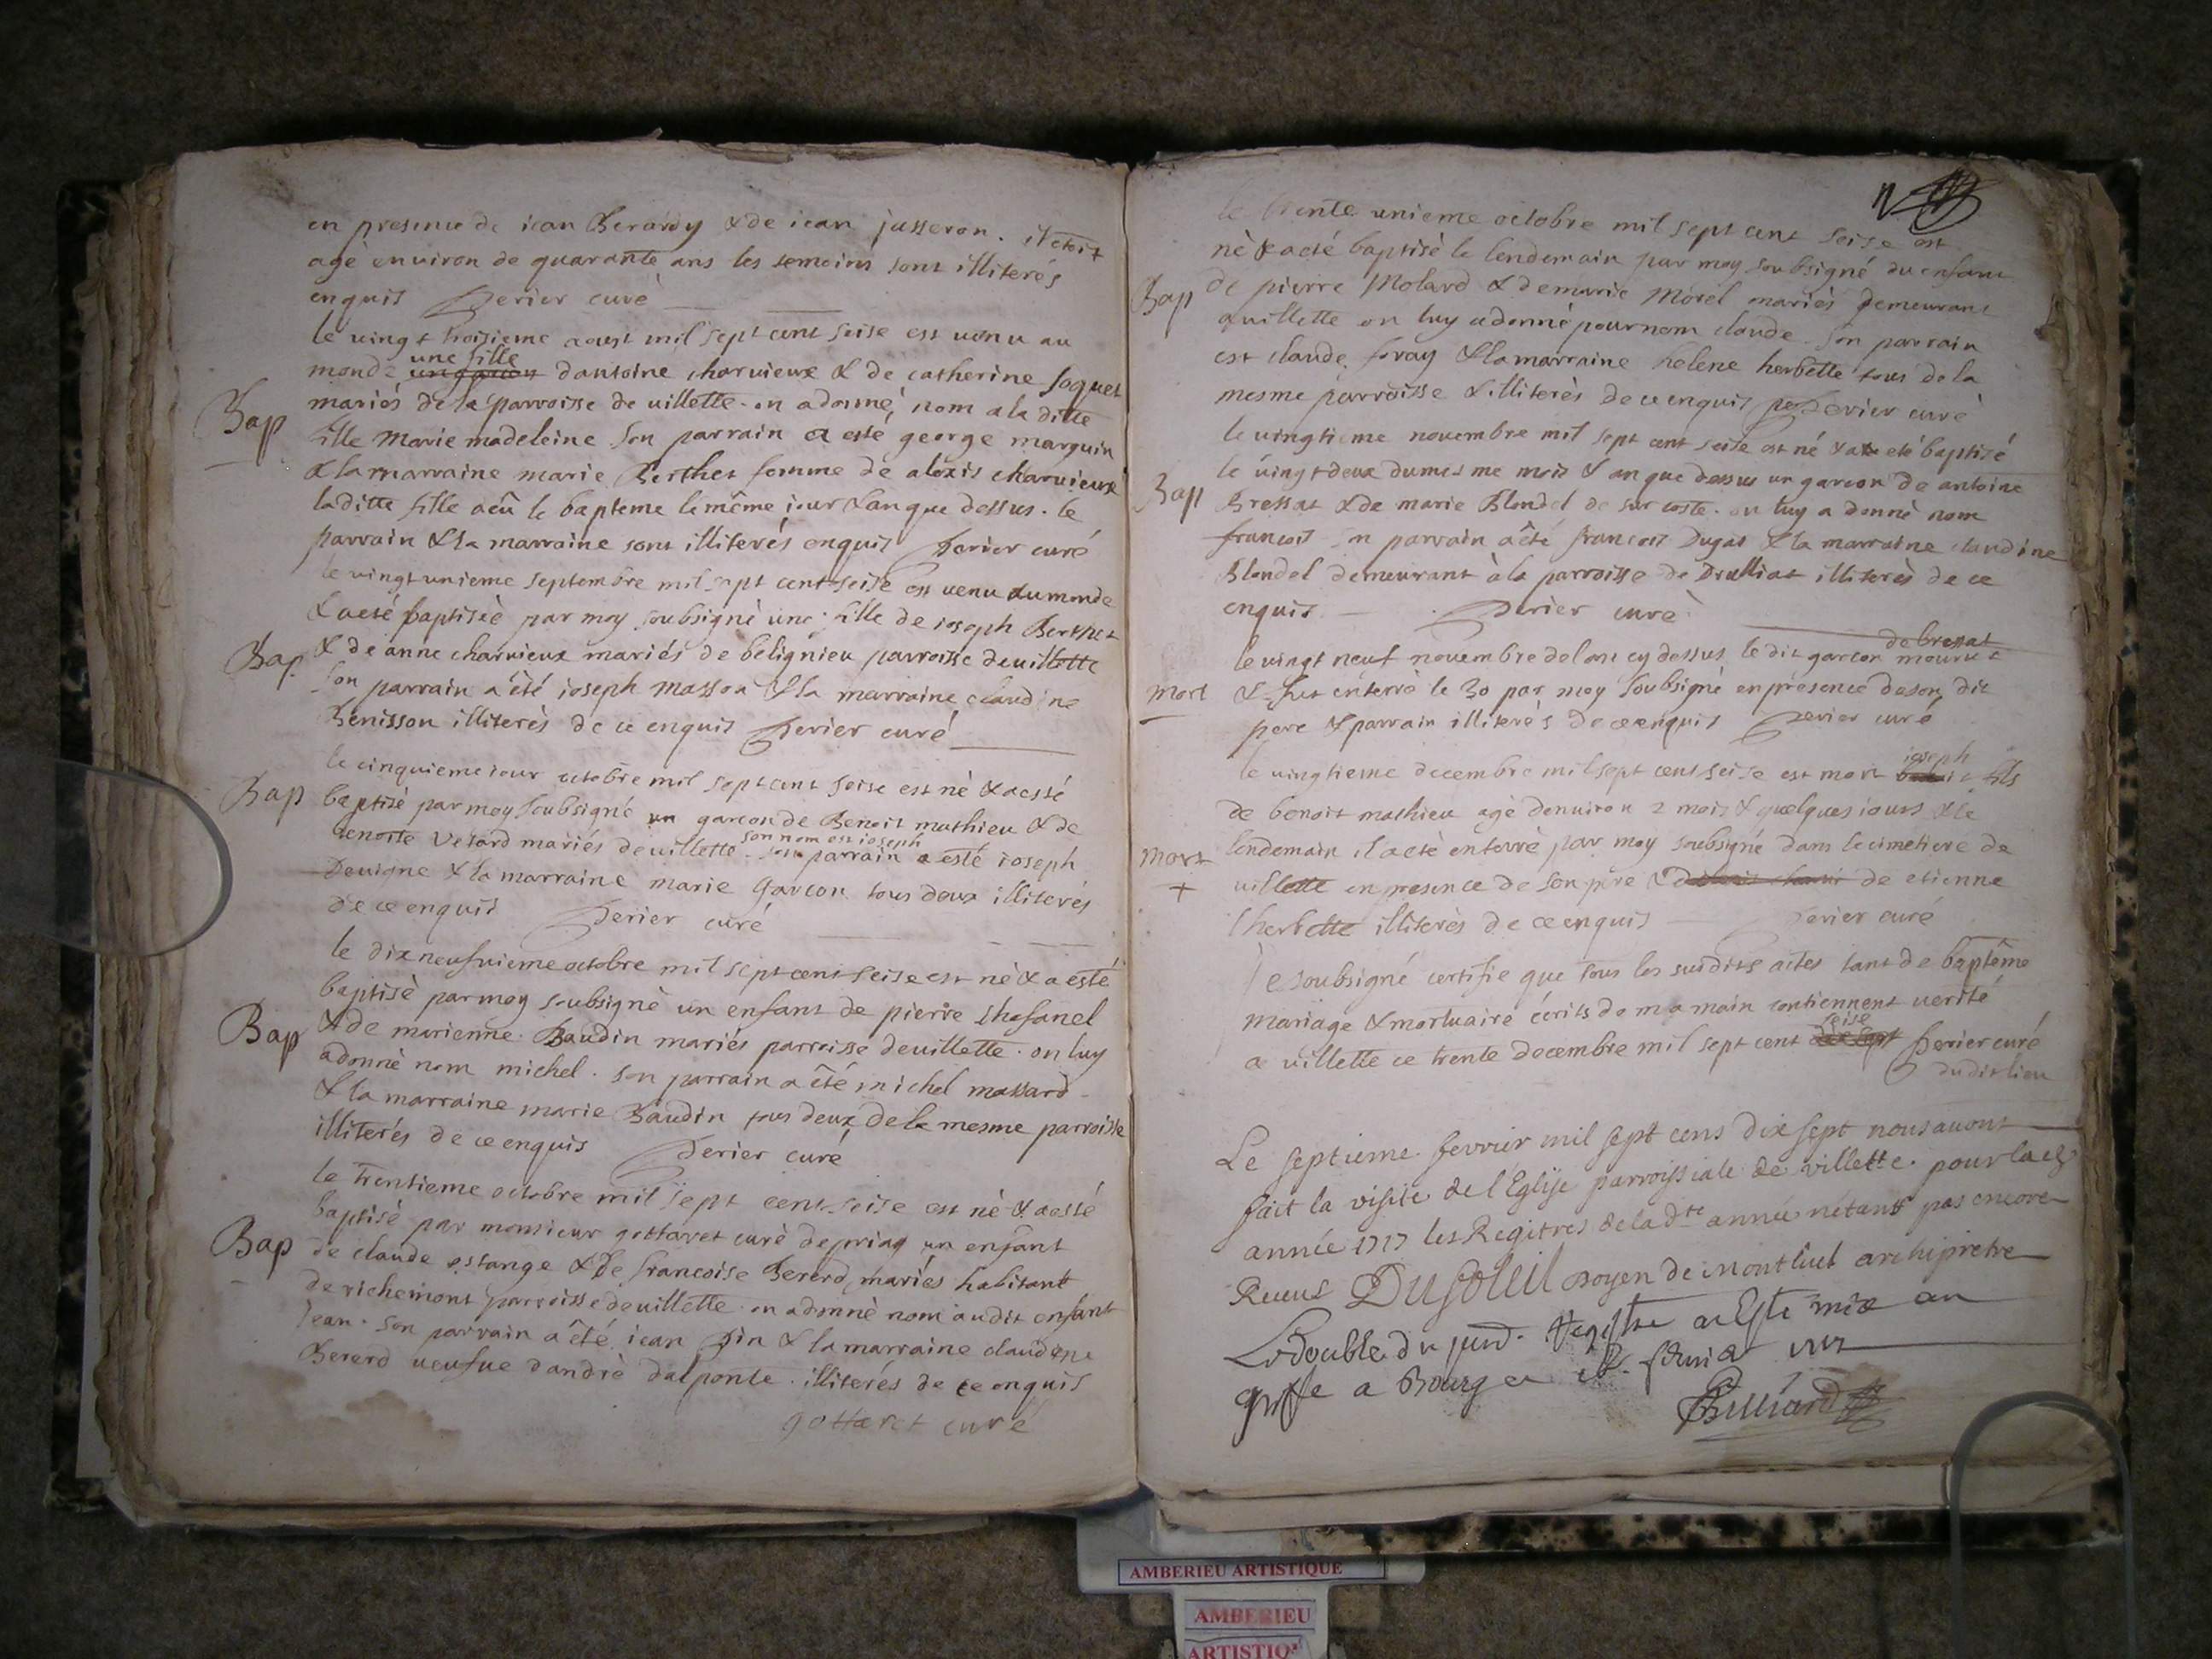 en presence de iean Berardy & de iean jusseron. il etoit
agè environ de quarante ans les temoins sont illiterés
enquis Perier curé
le vingt troisieme aoust mil sept cent seise est venu au
une fille
monde un garcon dantoine charvieux & de catherine soquet
Bap
mariés de la parroisse de villette. on a donné nom a la ditte
fille Marie madeleine son parrain a esté george marguin
& la marraine marie Berthet femme de alexis charvieux
laditte fille a eû le bapteme le même iour & an que dessus. le
parrain & la marraine sont illiterés enquis Perier curé
le vingt unieme septembre mil sept cent seise est venu au monde
& a eté baptisèe par moy soubsignè une fille de ioseph Berthet
Bap.
& de anne charvieux mariés de belignieu parroisse de villette
son parrain a été ioseph masson & la marraine claudine
Benisson illiterès de ce enquis Perier curé
le cinquieme iour octobre mil sept cent seise est nè & a esté
Bap
baptisè par moy soubsigné un garcon de Benoit mathieu & de
son nom est ioseph
benoite Vetard mariés de villette. son parrain a esté ioseph
Devigne & la marraine marie Garcon tous deux illiterés
de ce enquis Perier curé
le dixneufvieme octobre mil sept cent seise est nè & a esté
baptisè par moy soubsignè un enfant de pierre Chasanel
Bap
& de marienne Baudin mariés parroisse de villette. on luy
a donnè nom michel. son parrain a êté michel massard
& la marraine marie Baudin tous deux de la mesme parroisse
illiterés de ce enquis Perier curé
le trentieme octobre mil sept cent seise est nè & a esté
baptisè par monsieur gottaret curè de priay un enfant
Bap
de claude estange & de francoise Bererd mariés habitant
de richemont parroisse de villette. on a donnè nom audit enfant
iean. son parrain a êté iean Pin & la marraine claudine
Bererd veufue dandrè dalponte. illiterés de ce enquis
gottaret curé
le trente unieme octobre mil sept cent seise est
nè & a eté baptisè le lendemain par moy soubsigné un enfant
Bap
de pierre Molard & de marie Morel mariés demeurant
a villette on luy a donnè pour nom claude. son parrain
est claude foray & la marraine helene herbette tous de la
mesme parroisse & illiterès de ce enquis Perier curè
le vingtieme novembre mil sept cent seise est né & a eté baptisé
le vingt deux du mesme mois & an que dessus un garcon de antoine
Bap
Bressat & de marie Blondel de sur coste. on luy a donnè nom
francois son parrain a êté francois Dugas & la marraine claudine
Blondel demeurant à la parroisse de Druilliat illiterès de ce
enquis Perier curè
de bressat
le vingt neuf novembre de lan cy dessus le dit garcon mourut
mort
& fut enterrè le 30 par moy soubsignè en presence de son dit
pere & parrain illiterés de ce enquis Perier curé
ioseph
le vingtieme decembre mil sept cent seise est mort fils
de benoit mathieu agè denviron 2 mois & quelques iours & le
mort
lendemain il a eté enterrè par moy soubsigné dans le cimetiere de
+
villette en presence de son pere & de etienne
lherbette illiterès de ce enquis Perier curé
Ie soubsigné certifie que tous les susdits actes tant de baptême
mariage & mortuaire écrits de ma main contiennent verité
seise
a villette ce trente decembre mil sept cent dix sept Perier curé
dudit lieu
Le septieme fevrier mil sept cens dix sept nous avons
fait la visite de l'Eglise parroissiale de villette. pour lad
année 1717 les Regitres de lad.te année n'étant pas encore
Receus DuSoleil Doyen de Montluel archipretre
Le Double du pnd. Registre a Esté mis au
greffe a Bourg
AMBERIEU ARTISTIQUE
AMBERIEU
ARTISTIQ